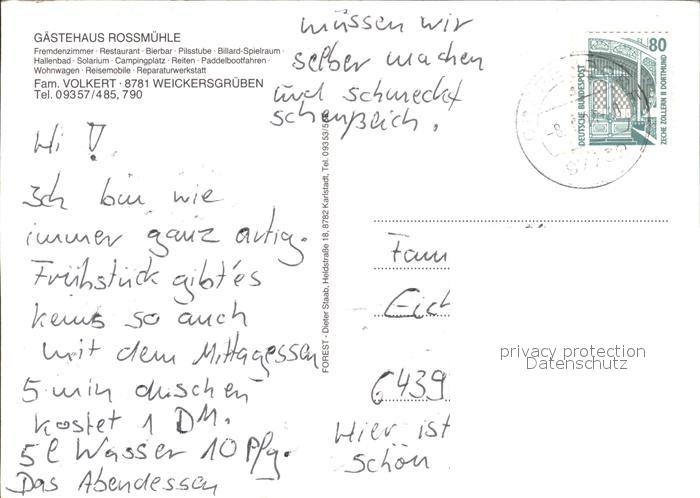 GÄSTEHAUS ROSSMÜHLE
Fremdenzimmer · Restaurant · Bierbar · Pilsstube · Billard-Spielraum ·
Hallenbad · Solarium · Campingplatz · Reiten · Paddelbootfahren ·
Wohnwagen · Reisemobile · Reparaturwerkstatt
Fam. VOLKERT · 8781 WEICKERSGRÜBEN
Tel. 09357/485, 790
Hi !
Ich bin wie
immer ganz artig.
Frühstück gibt's
keins so auch
mit dem Mittagessen
5 min duschen
kostet 1 DM.
5 l Wasser 10 Pfg.
Das Abendessen
müssen wir
selber machen
und schmeckt
scheußlich.
FOREST - Dieter Staab, Heldstraße 18, 8782 Karlstadt, Tel. 09353/5
80
DEUTSCHE BUNDESPOST
ZECHE ZOLLERN II DORTMUND
-8.
Fam
Eich
6439
Hier ist
schön
privacy protection
Datenschutz